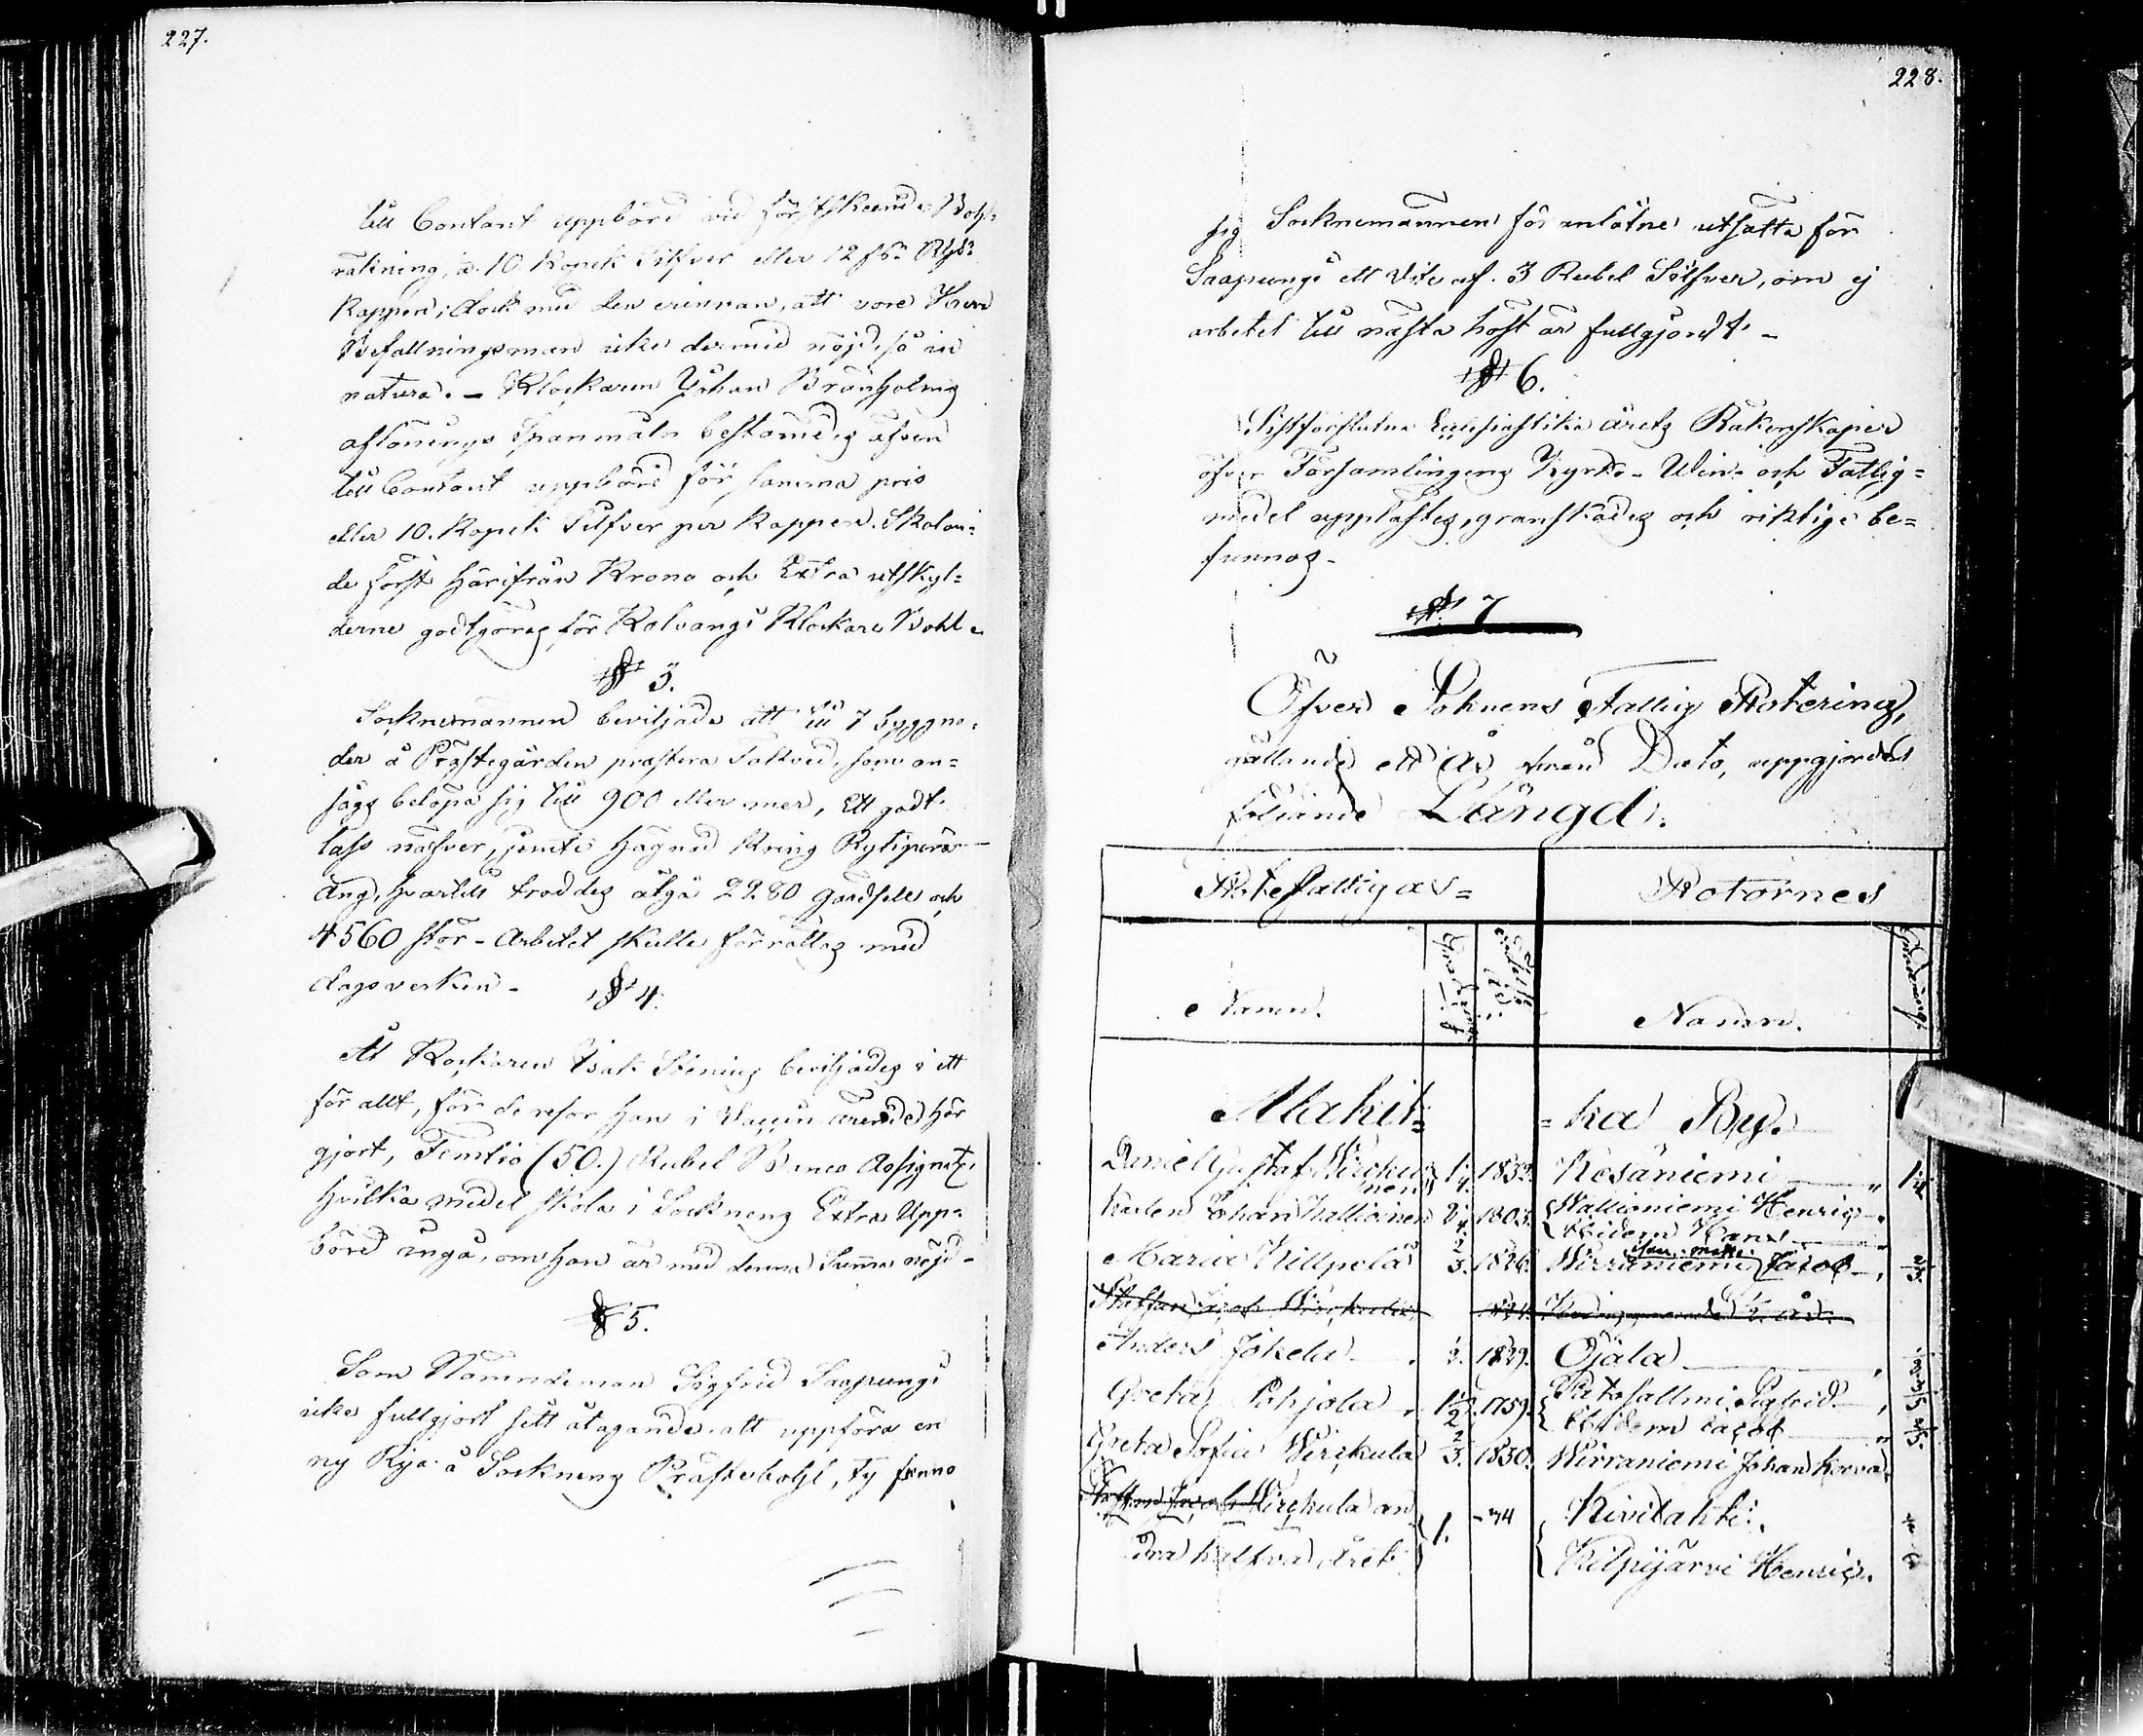 227.
till Contant uppbörd vid förstskeende Bohl=
räkning, a. 10. Kopek Silfver eller 12 sk. Rgs.
Kappen; dock med den erinnran, att vore Herr
Befallningsman icke dermed nöjd, så in
natura. - Klockaren Johan Bränholms
aflönings Spanmåln bestämdes äfven
till Contant uppbörd för samma pris
eller 10. Kopek Silfver per Kappen. Skolan=
de först härifrån Krono och Extra utskyl=
derne godtgöras för Kolvangi Klockare Bohl.
§ 3.
Socknemännen beviljade att till 7 byggna=
der å Prästegården prestera Taltved, som an=
sågs belöpa sig till 900 eller mer, Ett godt
lass näfver, jemte hägnad kring Rytiperä
Äng, hvartill troddes åtgå 2280 gärdsell och
4560 stör - Arbetet skulle förrättas med
dagsverken -
§ 4.
Åt Klockaren Isak Stening beviljades i ett
för allt, för de resor han i Vaccin ärende här
gjort, Femtio (50.) Rubel Banco Assignat.
Hvilka medel skola i Socknens Extra Upp=
börd ingå, om han är med denna Summa nöjd -
§ 5.
Som Nämndeman Sigfrid Saapungi
icke fullgjort sitt åtagande att uppföra en
ny Rija å Socknens Prästebohl, ty funno
228.
sig Socknemännen för anlåtne utsätta för
Saapungi ett Vite af. 3 Rubel Silfver, om ej
arbetet till nästa höst är fullgjordt. -
§ 6.
Sistförflutna Eclesiastika årets Räkenskaper
öfver Församlingens Kyrko- Win- och Fattig=
medel upplästes, granskades och riktige be=
funnos -
§. 7
Öfver Soknens Fattig Rotering,
gällande ett År från Dato, uppgjordes
följande Längd.
Rotefattigas= Rotarnes
Namn. Gradering Födelse år. Namn. Gradering.
Alakit= =ka By.
Daniel Gustaf Wirckunen 1/4. 1832. Kesäniemi " 1/4
Karlen Johan Kallioinen 1803. Kallioniemi Henric
Ibidem Hans
Maria Killpola 2/3. 1826. Wirraniemi Jacob 2/3.
Staffan Jacob Wirckula
Anders Jokela 1829. Ojala
Greta Pohjola 1 1/2. 1759. Patosallmi Sigfrid
Ibidem Jacob
Greta Sofia Wirckula 2/3. 1830. Wirraniemi Johan Korva
Staffan Jacob Wirckula an= 1. -34 Kivilahti.
dra halfva året. Kilpijärvi Henric.